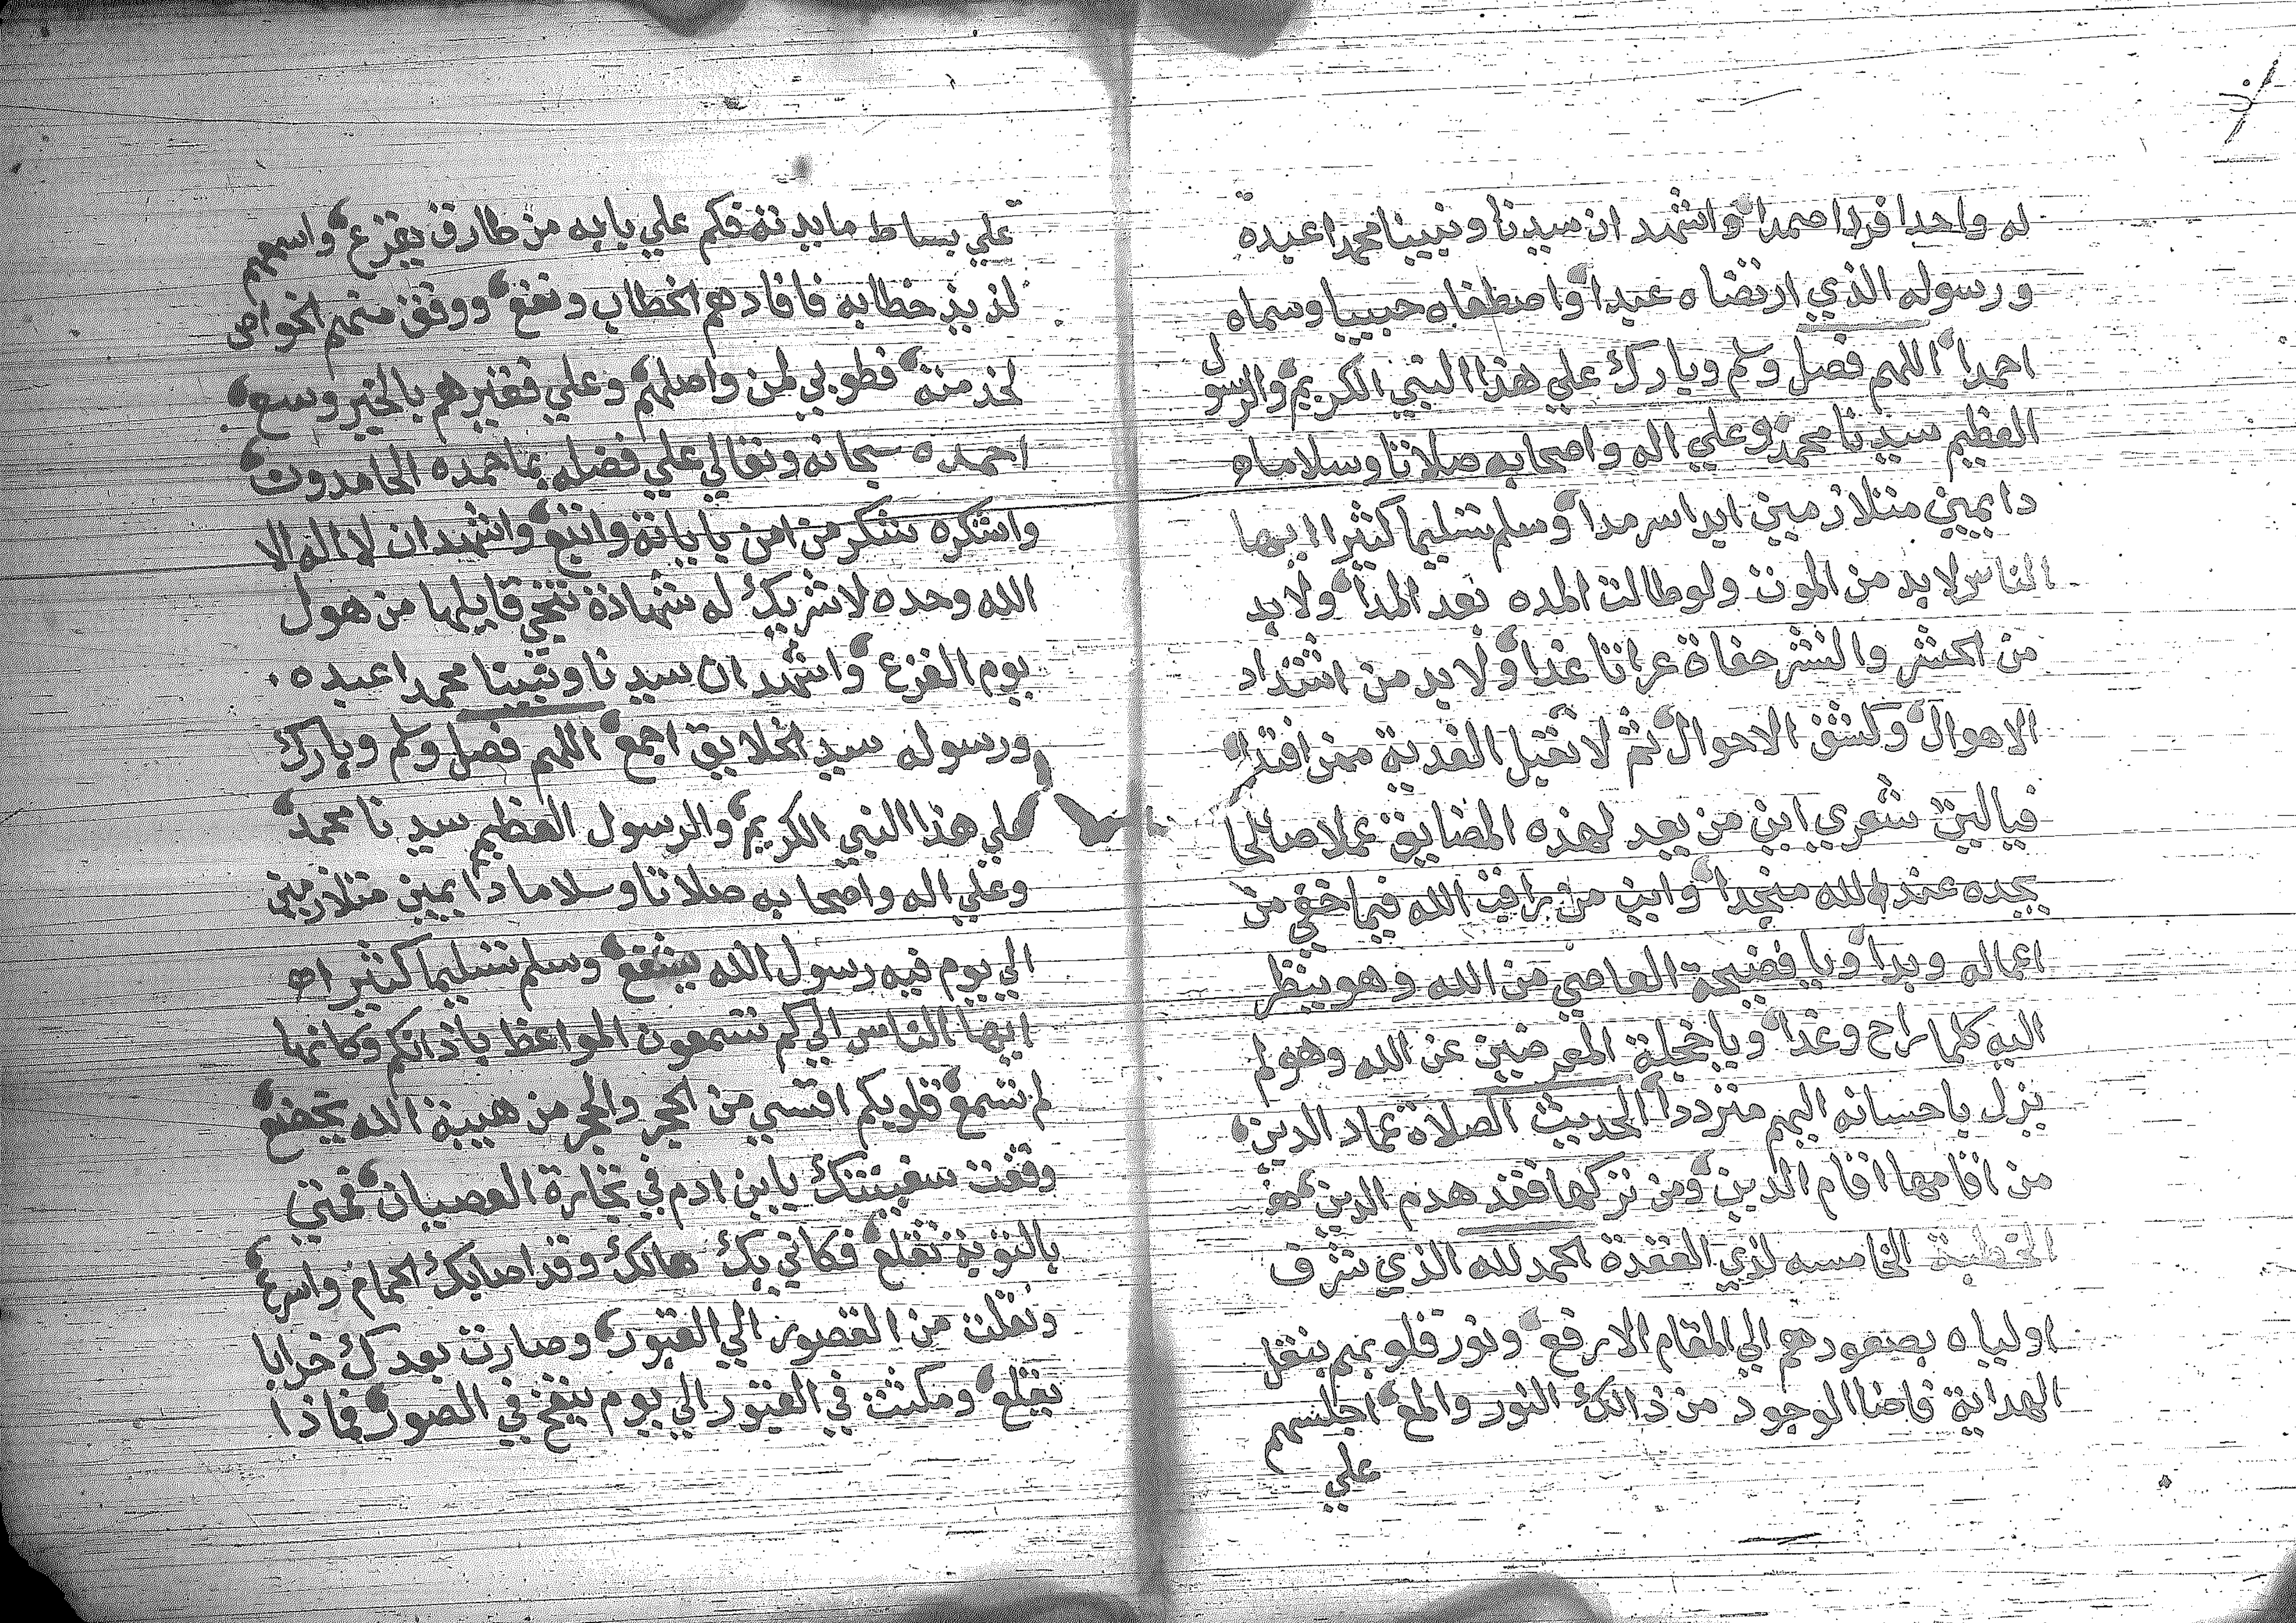 له واحدا فردا صمدا واشهد ان سيدنا ونبينا محمدا عبده
ورسوله الذي ارتضاه عبدا واصطفاه حبيبا وسماه
احمدا اللهم فصل وسلم وبارك علي هذا النبي الكريم والرسول
العظيم سيدنا محمد وعلي اله واصحابه صلاتا وسلاماه
دايمين متلازمين ابدا سرمدا وسلم تسليما كثيرا ايها
الناس لابد من الموت ولو طالت المده بعد المدا ولابد
من الحشر والنشر حفاة عراتا غدا ولابد من اشتداد
الاهوال وكشف الاحوال ثم لا تقبل الفدية ممن افتدا
فياليت شعري اين من يعد لهذه المضايق عملا صالحا
يجده عند الله منجدا واين من راقب الله فيما خفي من
اعماله وبدا ويا فضيحة العاصي من الله وهو ينظر
اليه كلما راح وغدا ويا خجلة المعرضين عن الله وهو لم
يزل باحسانه اليهم مترددا الحديث الصلاة عماد الدين
من اقامها اقام الدين ومن تركها فقد هدم الدين
الخطبة الخامسه لذي القعدة الحمد لله الذي شرف
اولياه بصعودهم الي المقام الارفع ونور قلوبهم بنقل
الهداية فاضا الوجود من ذالك النور والمع اجلسهم
علي
علي بساط مايدته فكم علي بابه من طارق يقرع واسمعهم
لذيذ خطابه فافادهم الخطاب ونفع ووقف منهم الخواص
لخدمته فطوبي لمن واصلهم وعلي فقيرهم بالخير وسع
احمده سبحانه وتعالي علي فضله بما حمده الحامدون
واشكره شكر من امن باياته واتبع واشهد ان لا اله الا
الله وحده لا شريك له شهادة تنجي قايلها من هول
يوم الفزع واشهد ان سيدنا ونبينا محمدا عبده
ورسوله سيد الخلايق اجمع اللهم فصل وسلم وبارك
علي هذا النبي الكريم والرسول العظيم سيدنا محمد
وعلي اله واصحابه صلاتا وسلاما دايمين متلازمين
الي يوم فيه رسول الله يشفع وسلم تسليما كثيرا
ايها الناس الي كم تسمعون المواعظ باذانكم وكانها
لم تسمع قلوبكم اقسي من الحجر والحجر من هيبة الله يخضع
وقفت سفينتك يابن ادم في تجارة العصيان فمتي
بالتوبة تقلع فكاني بك هالك وقد اصابك الحمام واسرع
ونقلت من القصور الي القبور وصارت بعدك خرابا
بقلع ومكثت في القبور الي يوم ينفخ في الصور فماذا